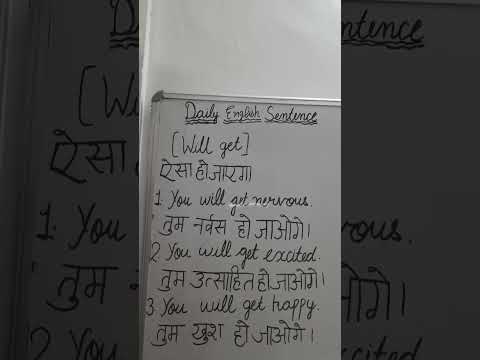 Daily English Sentence
[Will get]
ऐसा हो जाएगा
1. You will get nervous.
तुम नर्वस हो जाओगे।
2. You will get excited.
तुम उत्साहित हो जाओगे।
3. You will get happy.
तुम खुश हो जाओगे।